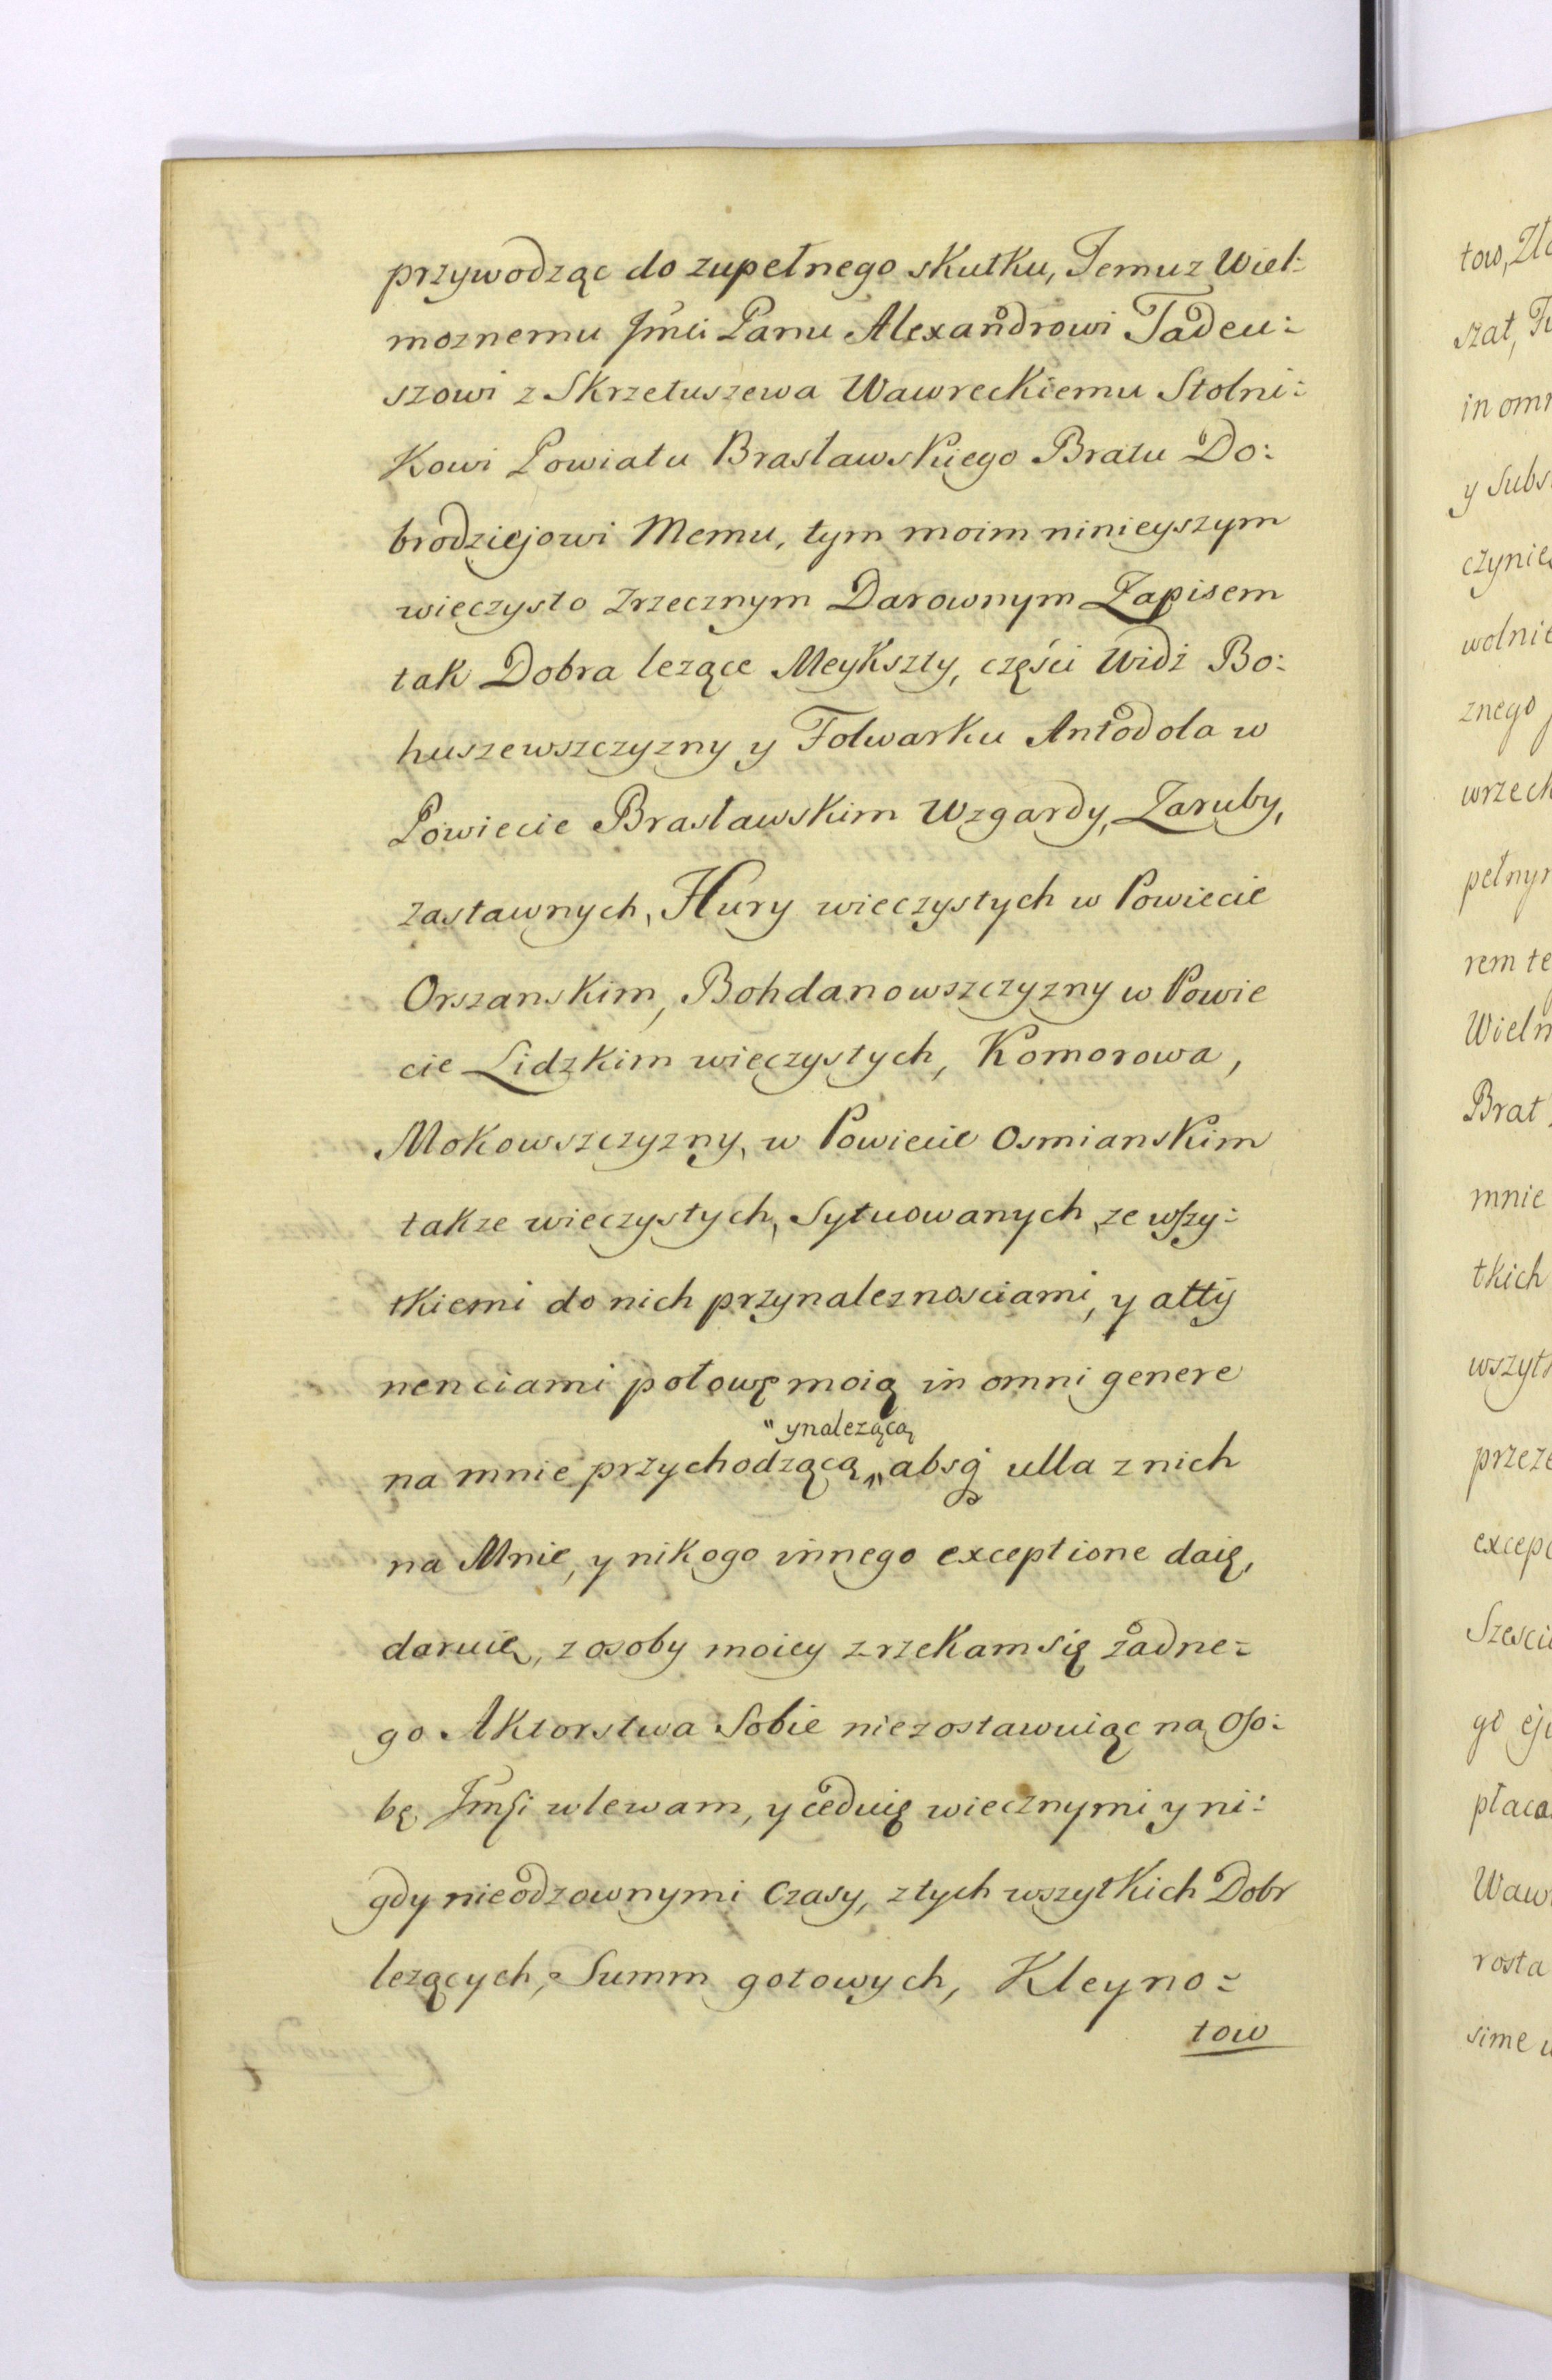 przywodząc do zupełnego skutku, Temuz Wiel:
moznemu Jmći Panu Alexandrowi Tadeu:
szowi z Skrzetuszewa Wawreckiemu Stolni:
kowi Powiatu Brasławskiego Bratu Do:
brodziejowi Memu, tym moim ninieyszym
wieczysto zrzecznym Darownym Zapisem
tak Dobra lezące Meykszty, części Widź Bo:
huszewszczyzny y Folwarku Antodola w
Powiecie Brasławskim Wzgardy, Zaruby,
zastawnych, Hury wieczystych w Powiecie
Orszanskim, Bohdanowszczyzny w Powie
cie Lidzkim wieczystych, Komorowa,
Mokowszczyzny, w Powiecie Osmianskim
takze wieczystych, Sytuowanych, ze wszy:
tkiemi do nich przynaleznosciami, y atty
nenciami połowę moią in omni genere
" ynalezącą
na mnie przychodzącą " absq ulla z nich
na Mnie, y nikogo innego exceptione daię,
daruię, z osoby moiey zrzekam się żadne:
go Aktorstwa Sobie niezostawuiąc na Oso:
bę Jmsi wlewam, y ceduię wiecznymi y ni:
gdy nieodzownymi Czasy, z tych wszytkich Dobr
lezących, Summ gotowych, Kleyno:
tow
tow,
szat,
y Subs
wolnie
znego
wrzech
rem te
Brat
mnie
tkich
rosta
sime